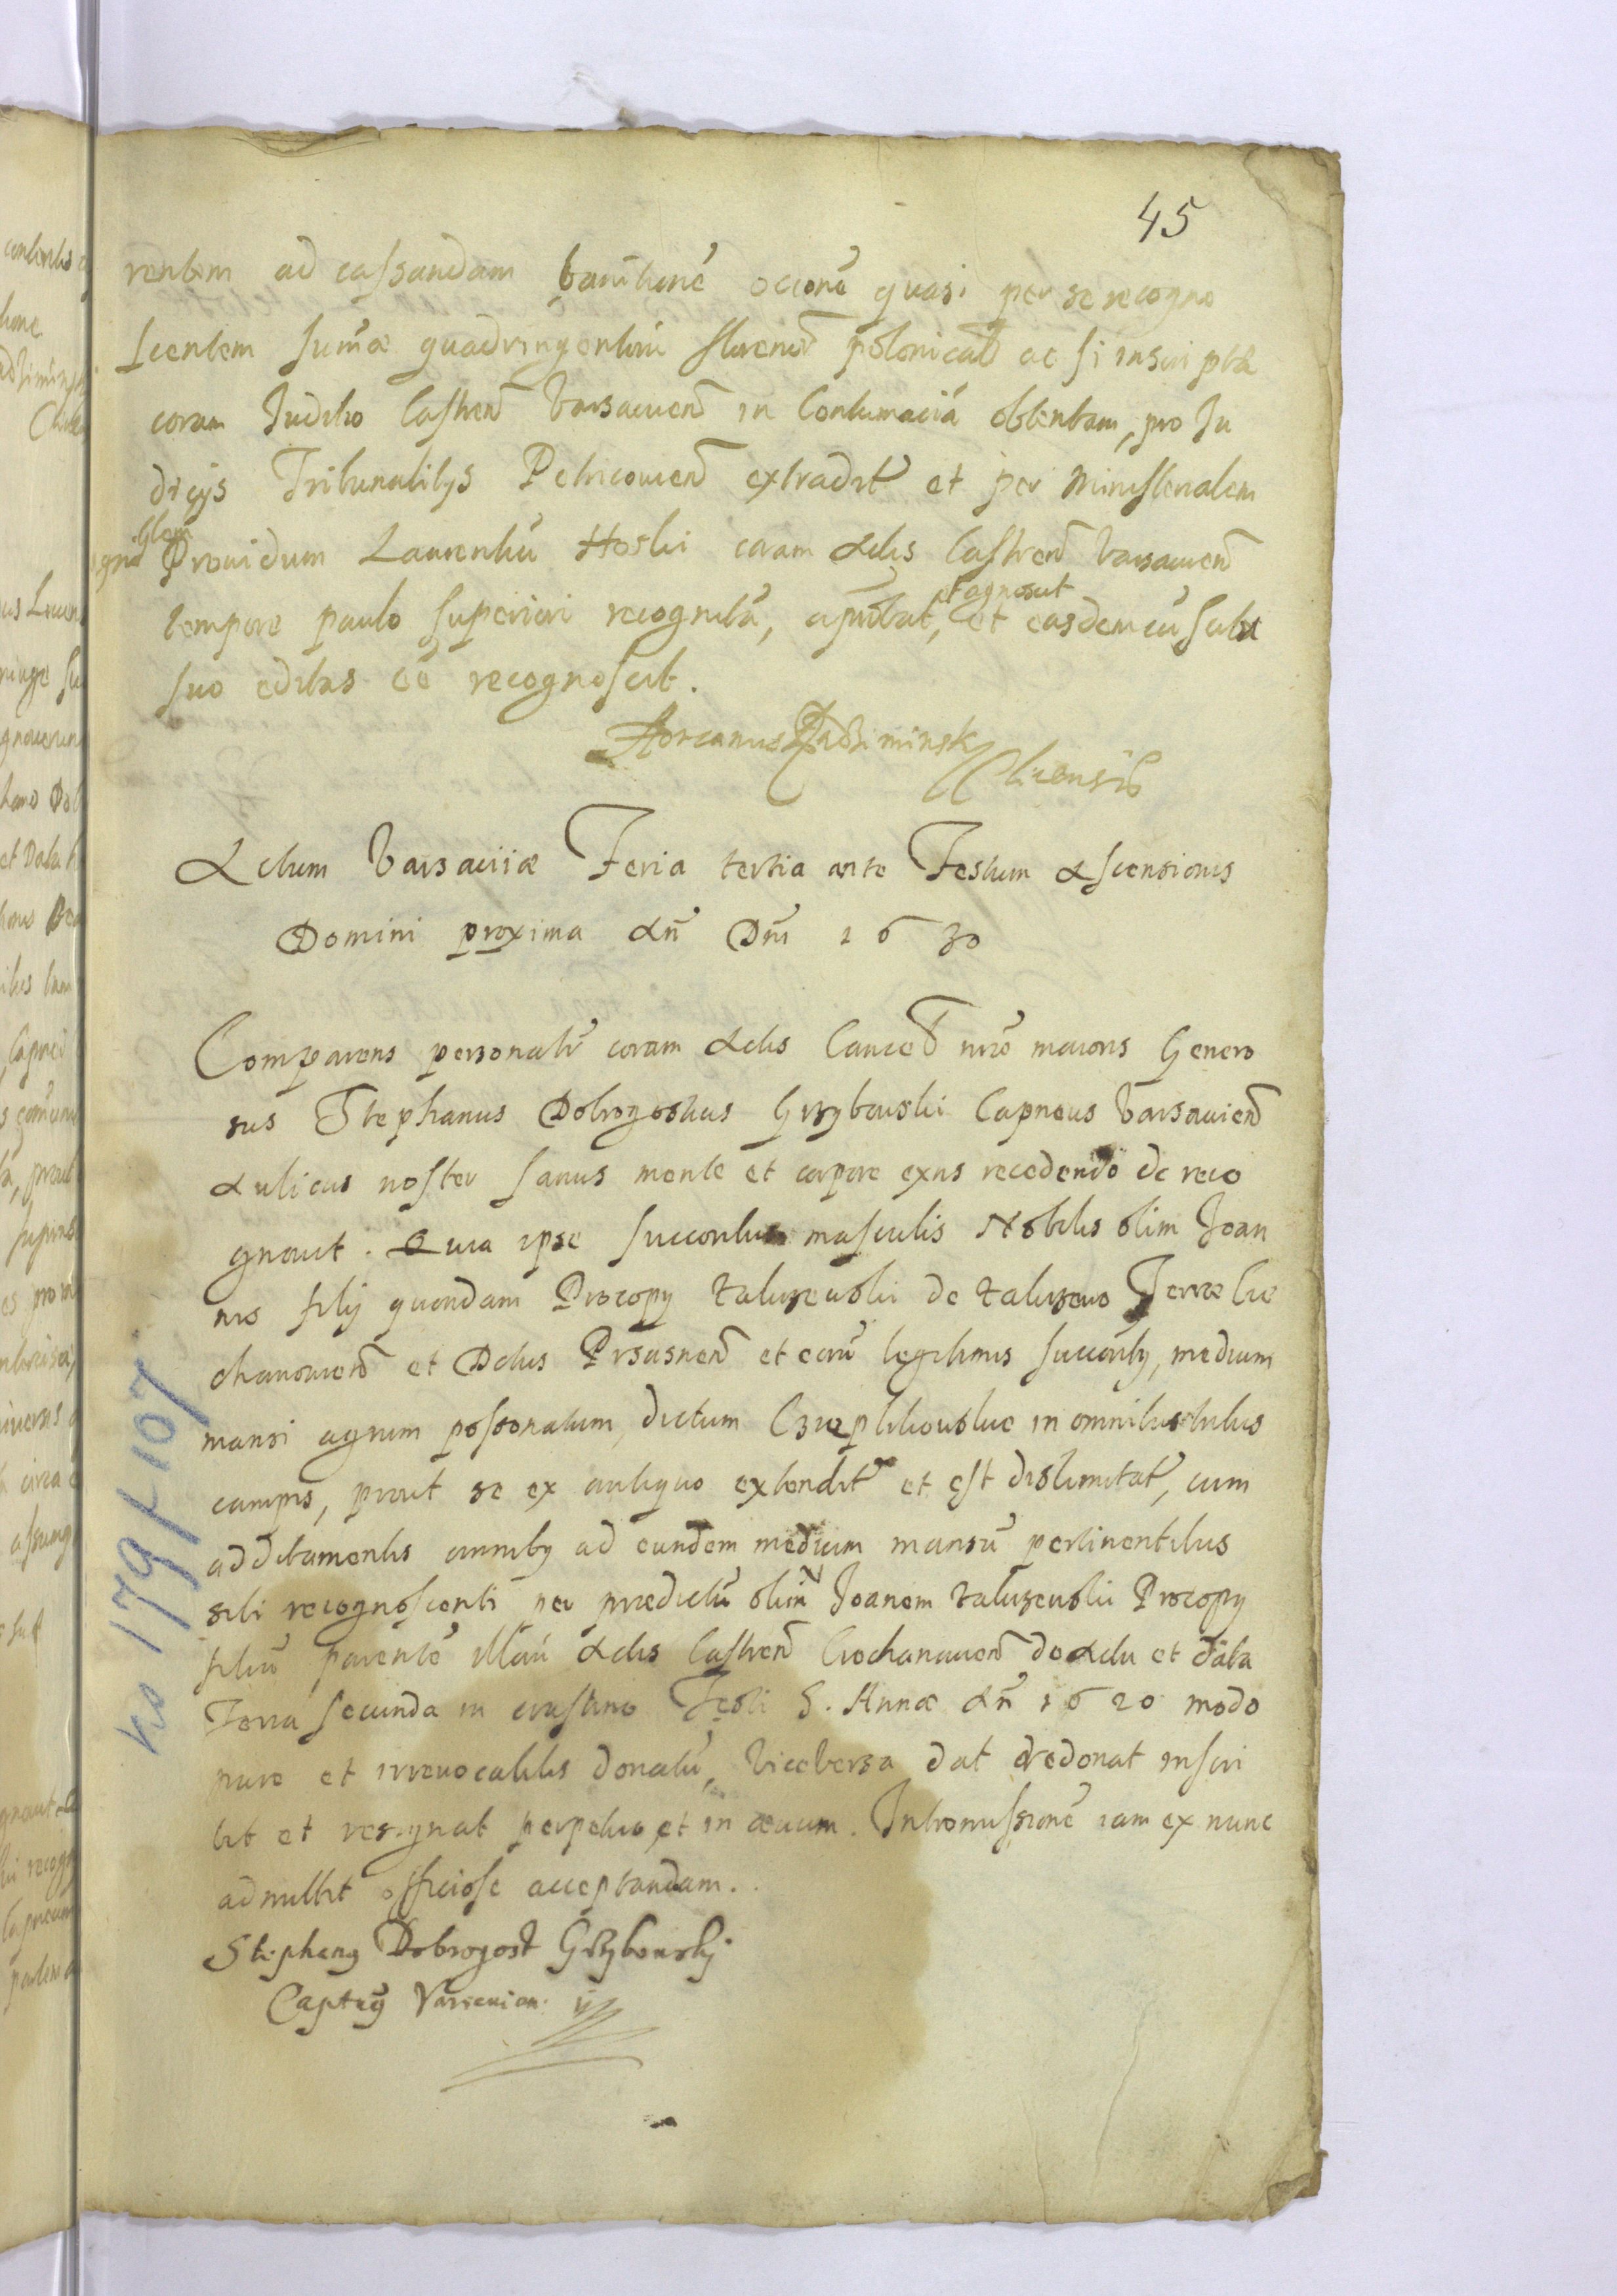 45
rentem ad cassandam banitione occone quasi per se recogno
scentem sumæ quadringentorū florenor polonicaliū ac si inscriptæ
coram Judicio Castren Varsavien in Contumacia obtentam, pro Ju
dicijs Tribunalitijs Petricovien extradit et per Ministerialem
Providum Laurentiū Hoski coram Actis Castren Varsavien
et agnoscit
tempore paulo superiori recognitā, aprobat, et easdem cū scitu
suo editas eē recognoscit.
Florianus Radziminsky
Actum Varsaviæ Feria tertia ante Festum Ascensionis
Domini proxima Añ Dñi 1630
Comparens personalr coram Actis Cancell nræ maioris Genero
sus Stephanus Dobrogostius Grzybowski Capneus Varsavien
Aulicus noster sanus mente et corpore exns recedendo de reco
gnovit. Quia ipse succoribus masculis Nobilis olim Joan
nis filij quondam Procopy Zaluzewski de Zaluzewo Terræ Cie
chanovien et Dctus Prsasnen et eorū legitimis succorib, medium
mansi agrum possonatum, dictum in omnibus
campis, prout se ex antiquo extendit et est dislimitat, cum
additamentis omnib ad eundem medium mansū pertinentibus
sibi recognoscenti per prædictū olim Joanem Zaluzewski Procopy
filiū parente Actis Castren Ciechanovien de Actu et data
Feria secunda in crastino Festi S. Annæ Añ 1620 modo
puro et irrevocabilis donatū, viceversa dat dedonat inscri
bit et resignat perpetuo et in ævum. Intromissione iam ex nunc
admittit officiose acceptandam.
Stephang Dobrogost Grzybowskj
Captng Varsauien.
no 179/107